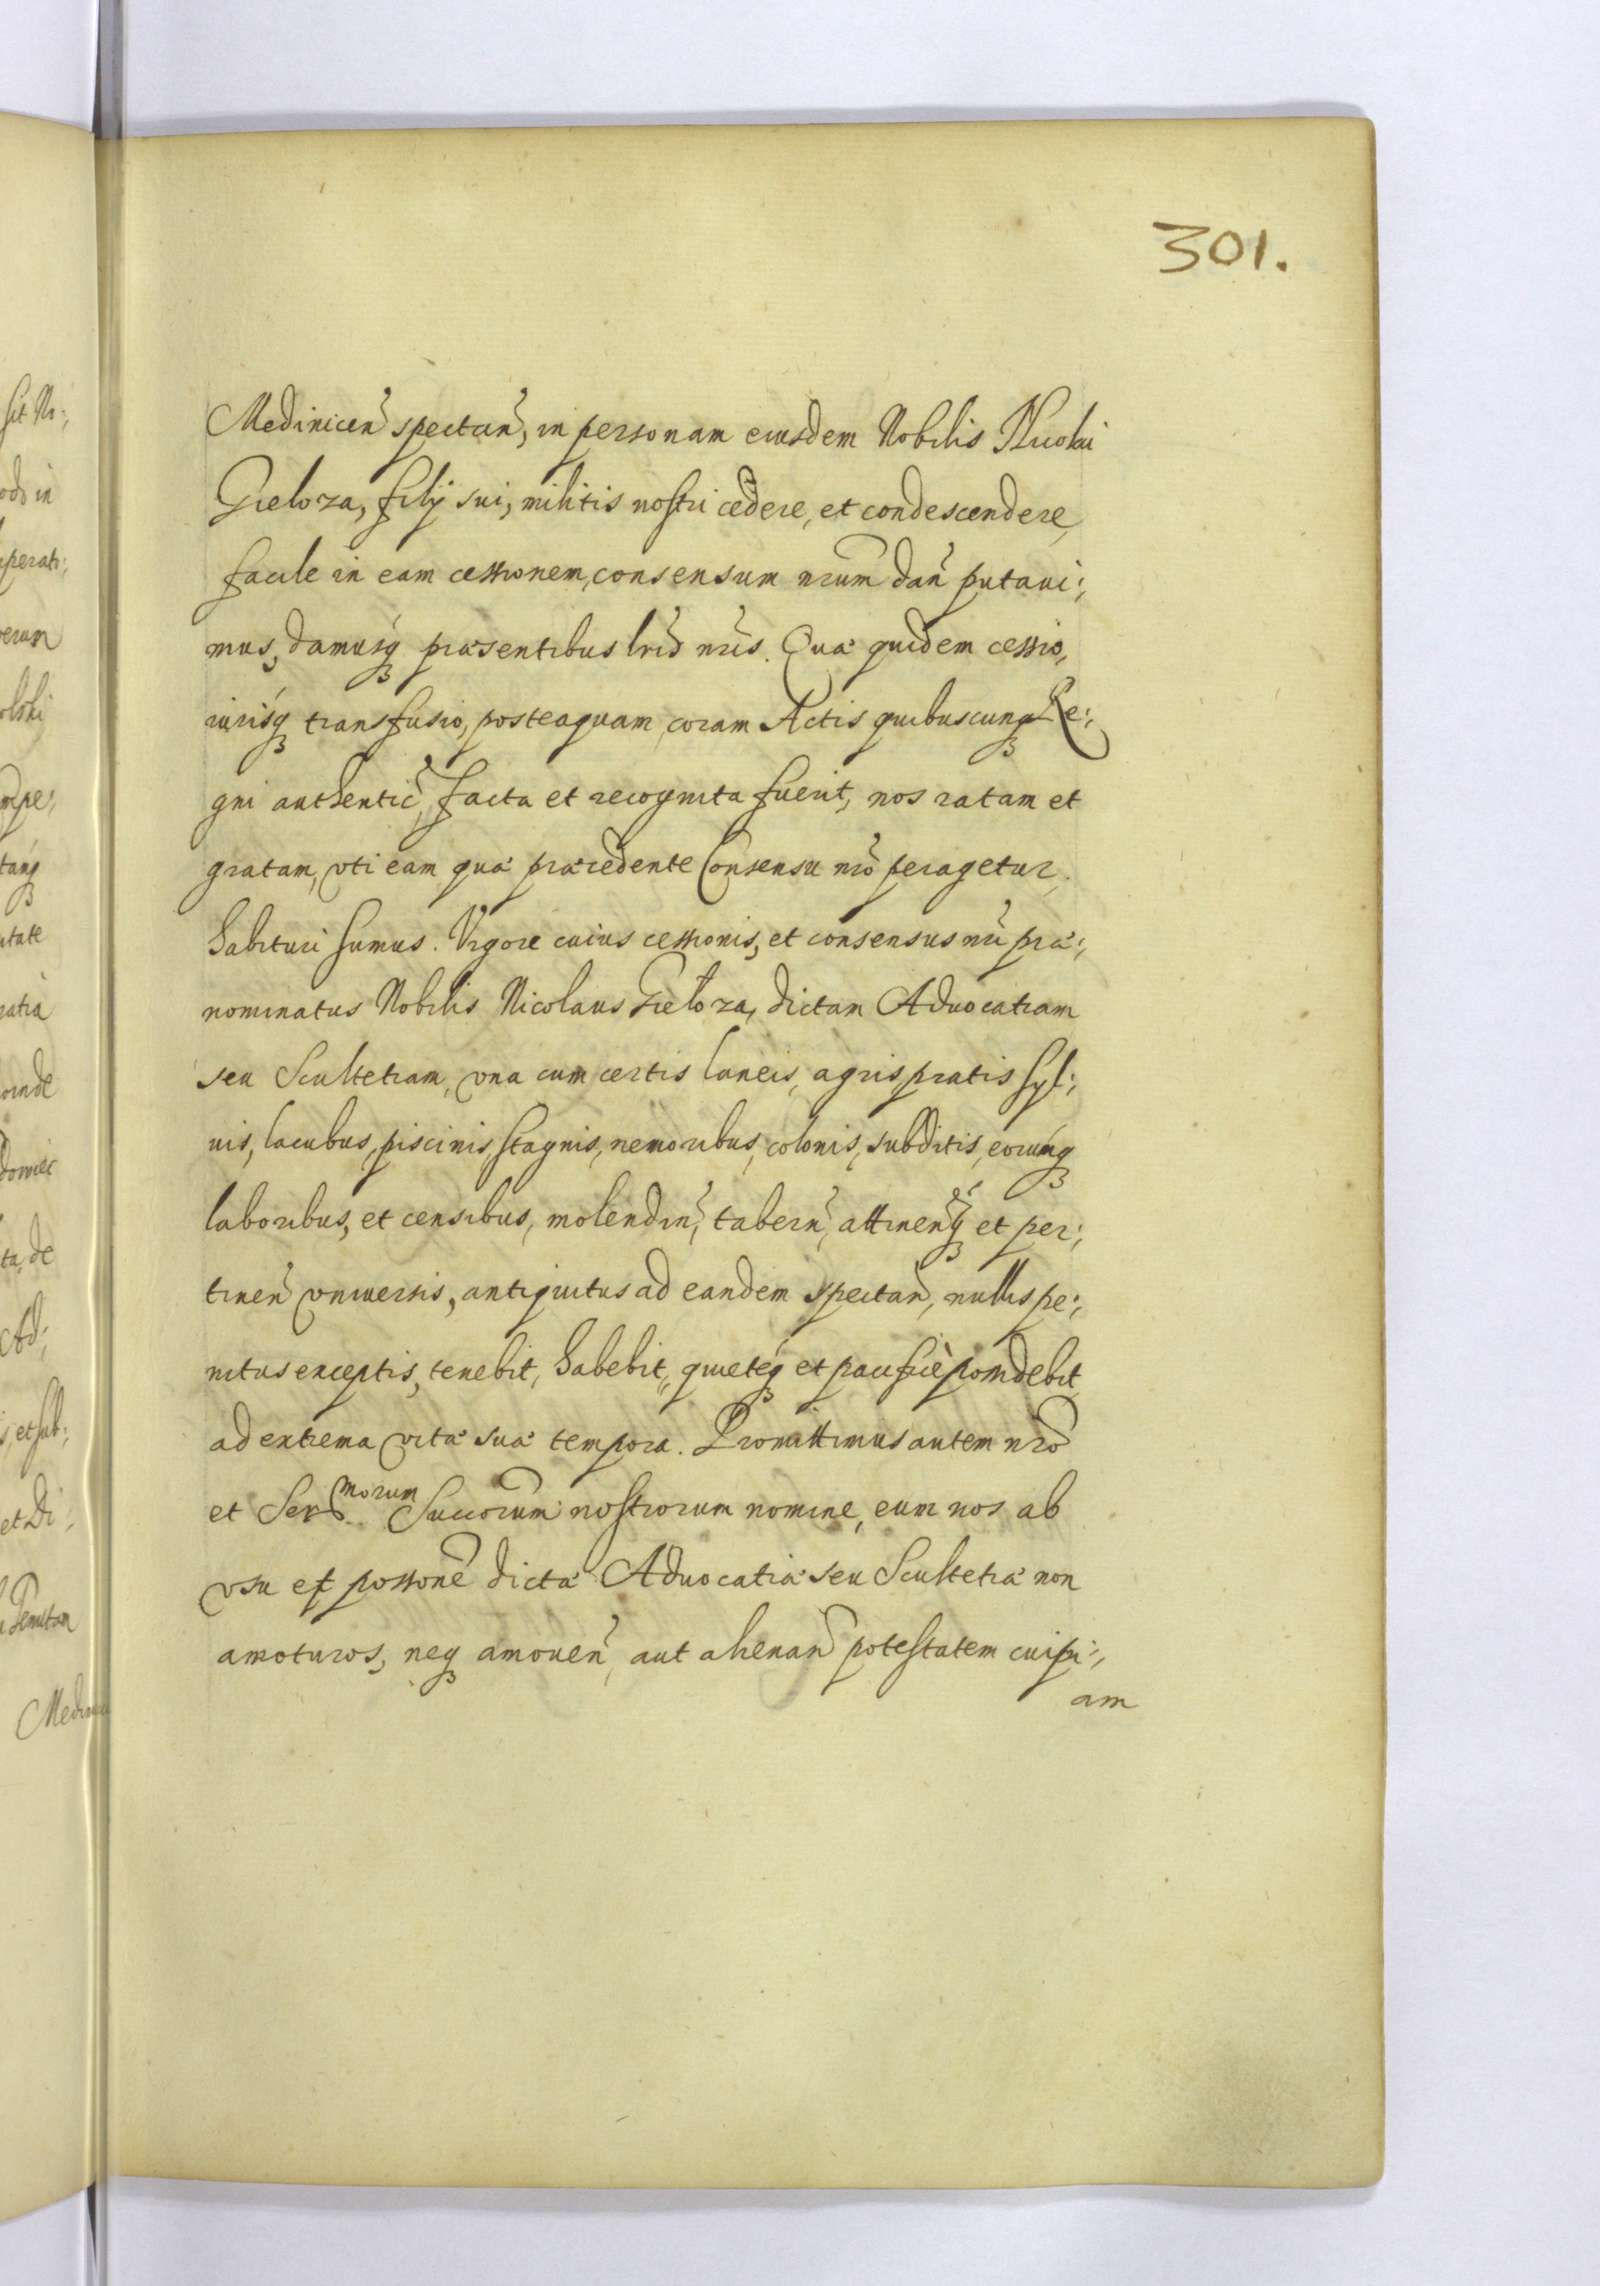 301.
Medinicen̄ spectan̄, in personam eiusdem Nobilis Nicolai
Gieloza, filij sui, militis nostri cedere, et condescendere,
facile in eam cessionem, consensum nrum̄ dan̄ putaui:,
mus, damusq́ præsentibus lris̄ nris̄. Quæ quidem cessio,
iurisq́ transfusio, posteaquam, coram Actis quibuscunq Re:,
gni authentic̄, facta et recognita fuerit, nos ratam et
gratam, vti eam quæ præcedente Consensu nro̅ peragetur,
habituri sumus. Vigore cuius cessionis, et consensus nri̅ præ:,
nominatus Nobilis Nicolaus Gieloza, dictam Aduocatiam
seu Scultetiam, vna cum certis laneis, agris, pratis syl:,
uis, lacubus, piscinis, stagnis, nemoribus, colonis, subditis, eorumq́
laboribus, et censibus, molendin̄, tabern̄, attinen̄q́ et per:,
tinen̄ vniuersis, antiquitus ad eandem spectan̄, nullis pe:,
nitus exceptis, tenebit, habebit, quieteq́ et pacificè possidebit,
ad extrema vitæ suæ tempora. Promittimus autem nro̅
et Ser morum Succorum̄ nostrorum nomine, eum nos ab
vsu et possone̅ dictæ Aduocatiæ seu Scultetiæ non
amoturos, neq amouen̄, aut alienan̄ potestatem cuipi:,
am
sit Ni:,
odo in
perati:,
Medinicen̄